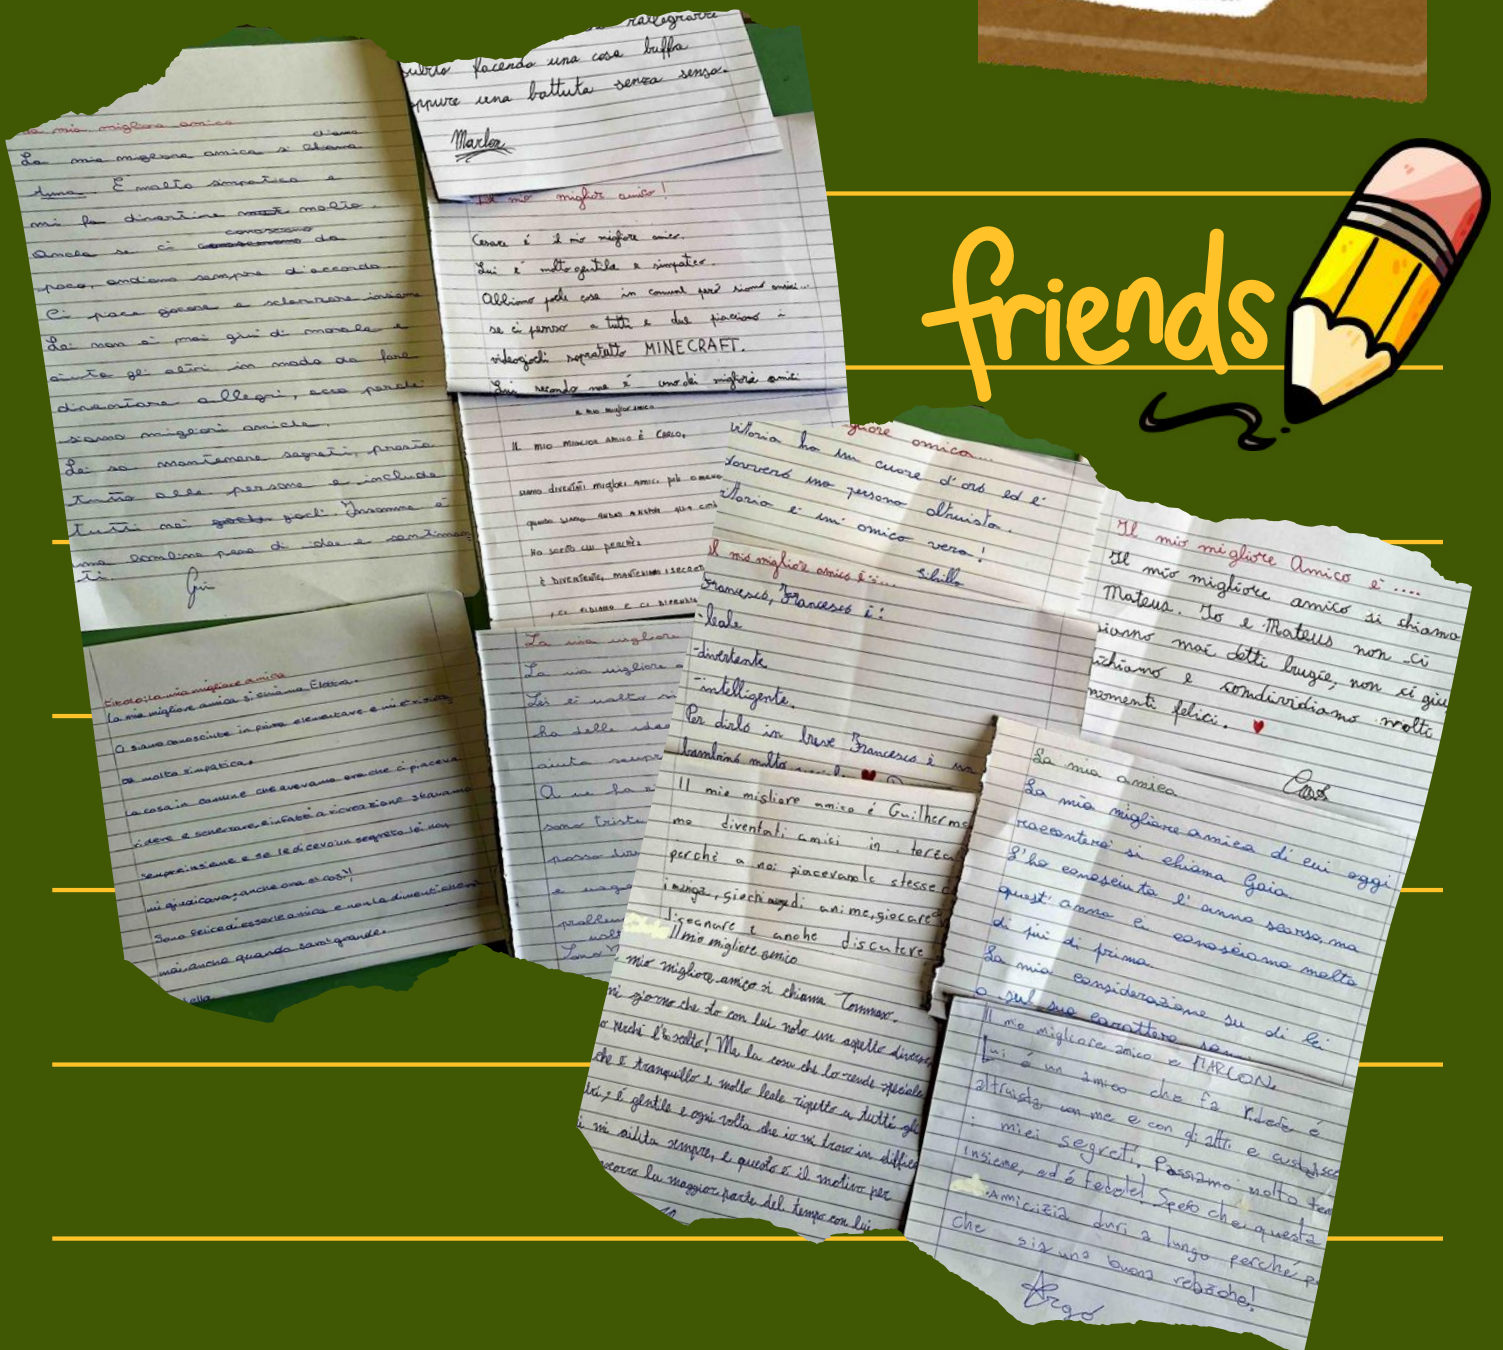 friends
La mia migliore amica
La mia migliore amica si chiama
Anna. È molto simpatica e
mi fa divertire molto.
Anche se ci conosciamo da
poco, andiamo sempre d'accordo.
Ci piace giocare e scherzare insieme
Lei non è mai giù di morale e
aiuta gli altri in modo da fare
diventare allegri, ecco perché
siamo migliori amiche.
Lei sa mantenere segreti, presta
tutto alle persone e include
tutti nei giochi. Insomma è
una bambina piena di idee e sentimen
ti.
Giu
rallegrarre
subito facendo una cosa buffa
oppure una battuta senza senso.
Marlon
Il mio miglior amico!
Cesare è il mio migliore amico.
Lui è molto gentile e simpatico.
Abbiamo poche cose in comune però siamo amici...
se ci penso a tutti e due piacciono i
videogiochi sopratutto MINECRAFT.
Lui secondo me è uno dei migliori amici
Il mio miglior amico
IL MIO MIGLIOR AMICO È CARLO,
SIAMO DIVENTATI MIGLIORI AMICI
HO SCELTO LUI PERCHÈ:
È DIVERTENTE, MANTIENE I SECRET
, CI FIDIAMO E CI
Titolo: La mia migliore amica
La mia migliore amica si chiama Elettra.
Ci siamo conosciute in prima elementare e mi è
molto simpatica.
La cosa in comune che avevamo era che ci piaceva
ridere e scherzare, infatti a ricreazione stavamo
sempre insieme e se le dicevo un segreto lei non
mi giudicava; anche ora è così!
Sono felice di esserle amica e non la dimenticherò
mai anche quando sarò grande.
La mia migliore
La mia migliore a
Lei è molto si
ha delle idee
aiuta sempre
A me ha
sono triste
posso dire
e
problem
gliore amica...
Vittoria ha un cuore d'oro ed è
davvero una persona altruista.
Vittoria è un' amica vera!
Sibilla
Il mio migliore amico è:...
Francesco, Francesco è:
-leale
-divertente
-intelligente.
Per dirlo in breve Francesco è un
bambino molto
Il mio migliore Amico è ....
Il mio migliore amico si chiama
Mateus. Io e Mateus non ci
siamo mai detti bugie, non ci giu
dichiamo e condividiamo molti
momenti felici.
Il mio migliore amico è Guilherme
mo diventati amici in terza
perchè a noi piacevano le stesse c
i manga, giochi di anime, giocare
disegnare e anche discutere
Il mio migliore amico
mio migliore amico si chiama Tommaso.
ni giorno che sto con lui noto un aspetto diverso,
o perché l'ho scelto! Ma la cosa che lo rende speciale
che è tranquillo e molto leale rispetto a tutti gli
tri, è gentile e ogni volta che io mi trovo in diffico
i mi aiuta sempre, e questo è il motivo per
la maggior parte del tempo con lui
La mia amica
La mia migliore amica di cui oggi
racconterò si chiama Gaia.
L'ho conosciuta l'anno scorso, ma
quest'anno ci conosciamo molto
di più di prima.
La mia considerazione su di lei
o sul suo carattere sono
Il mio migliore amico è MARLON.
Lui è un amico che fa ridere è
altruista con me e con gli altri e custodisce
i miei segreti. Passiamo molto tem
insieme, ed è fedele! Spero che questa
Amicizia duri a lungo perché p
che sia una buona relazione!
Argo